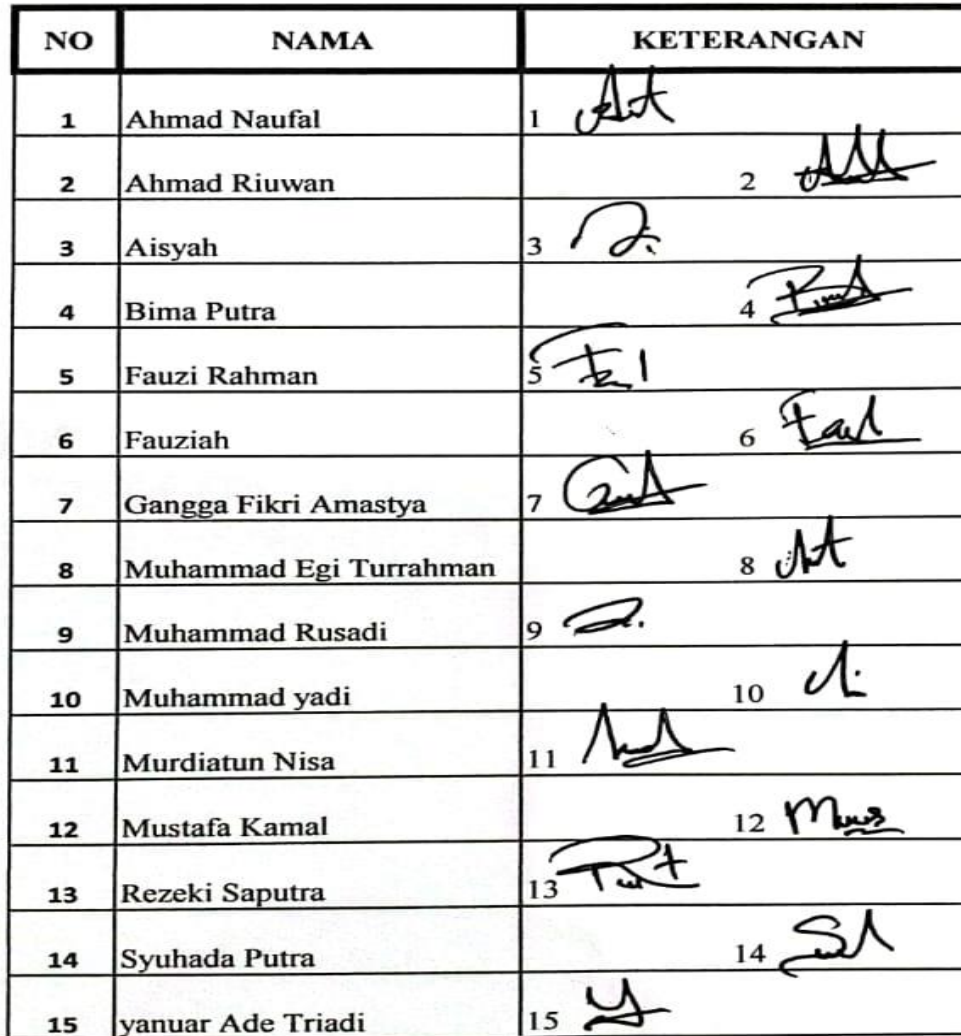 NO NAMA KETERANGAN
1 Ahmad Naufal 1
2 Ahmad Riuwan 2
3 Aisyah 3
4 Bima Putra 4
5 Fauzi Rahman 5
6 Fauziah 6
7 Gangga Fikri Amastya 7
8 Muhammad Egi Turrahman 8
9 Muhammad Rusadi 9
10 Muhammad yadi 10
11 Murdiatun Nisa 11
12 Mustafa Kamal 12
13 Rezeki Saputra 13
14 Syuhada Putra 14
15 yanuar Ade Triadi 15